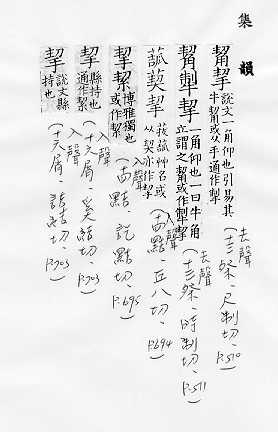 集韻
觢挈 說文一角仰也引易其
牛觢或从手通作掣
去聲
(十三祭、尺制切、P.510)
觢犁挈 一角仰也一曰牛角
立謂之觢或作犁挈
去聲
(十三祭、時制切、P.511)
菝葜挈 菝菰艸名或
从契亦作挈
入聲
(十四點、丘八切、P.694)
挈絜 博雅獨也
或作絜
入聲
(十四點、訖點切、P.695)
挈 縣持也
通作契
入聲
(十六屑、奚結切、P.703)
挈 說文縣
持也
入聲
(十六屑、詰結切、P.703)